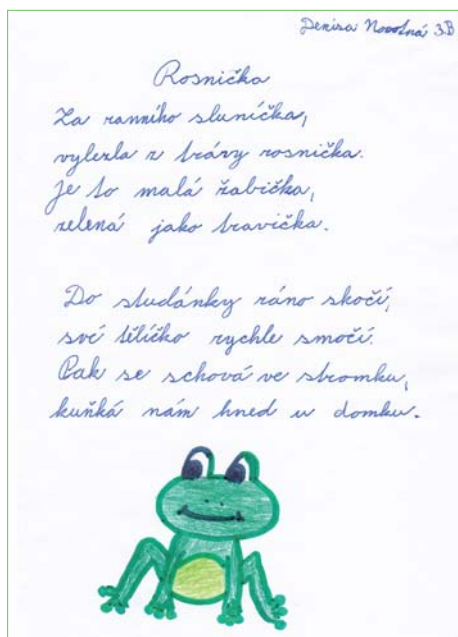 Denisa Novotná 3.B
Rosnička
Za ranního sluníčka,
vylezla z trávy rosnička.
Je to malá žabička,
zelená jako travička.
Do studánky ráno skočí,
své tělíčko rychle smočí.
Pak se schová ve stromku,
kuňká nám hned u domku.